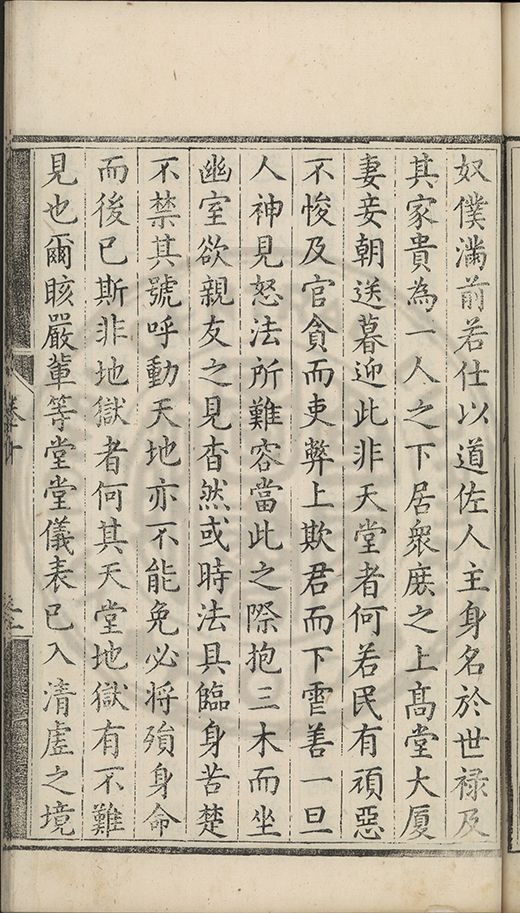 奴僕滿前若仕以道佐人主身名於世禄及
其家貴為一人之下居衆庶之上高堂大厦
妻妾朝送暮迎此非天堂者何若民有頑惡
不悛及官貪而吏弊上欺君而下虐善一旦
人神見怒法所難容當此之際抱三木而坐
幽室欲親友之見杳然或時法具臨身苦楚
不禁其號呼動天地亦不能免必将殞身命
而後已斯非地獄者何其天堂地獄有不難
見也爾眩嚴輩等堂堂儀表已入清虛之境
卷十